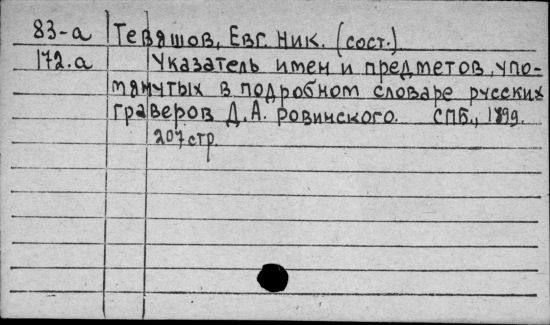 83-а Тевяшов, Евг. Ник. (сост.)
172.а Указатель имен и предметов, упо-
мянутых в подробном словаре русских
граверов Д.А. Ровинского. СПБ., 1899.
207 стр.